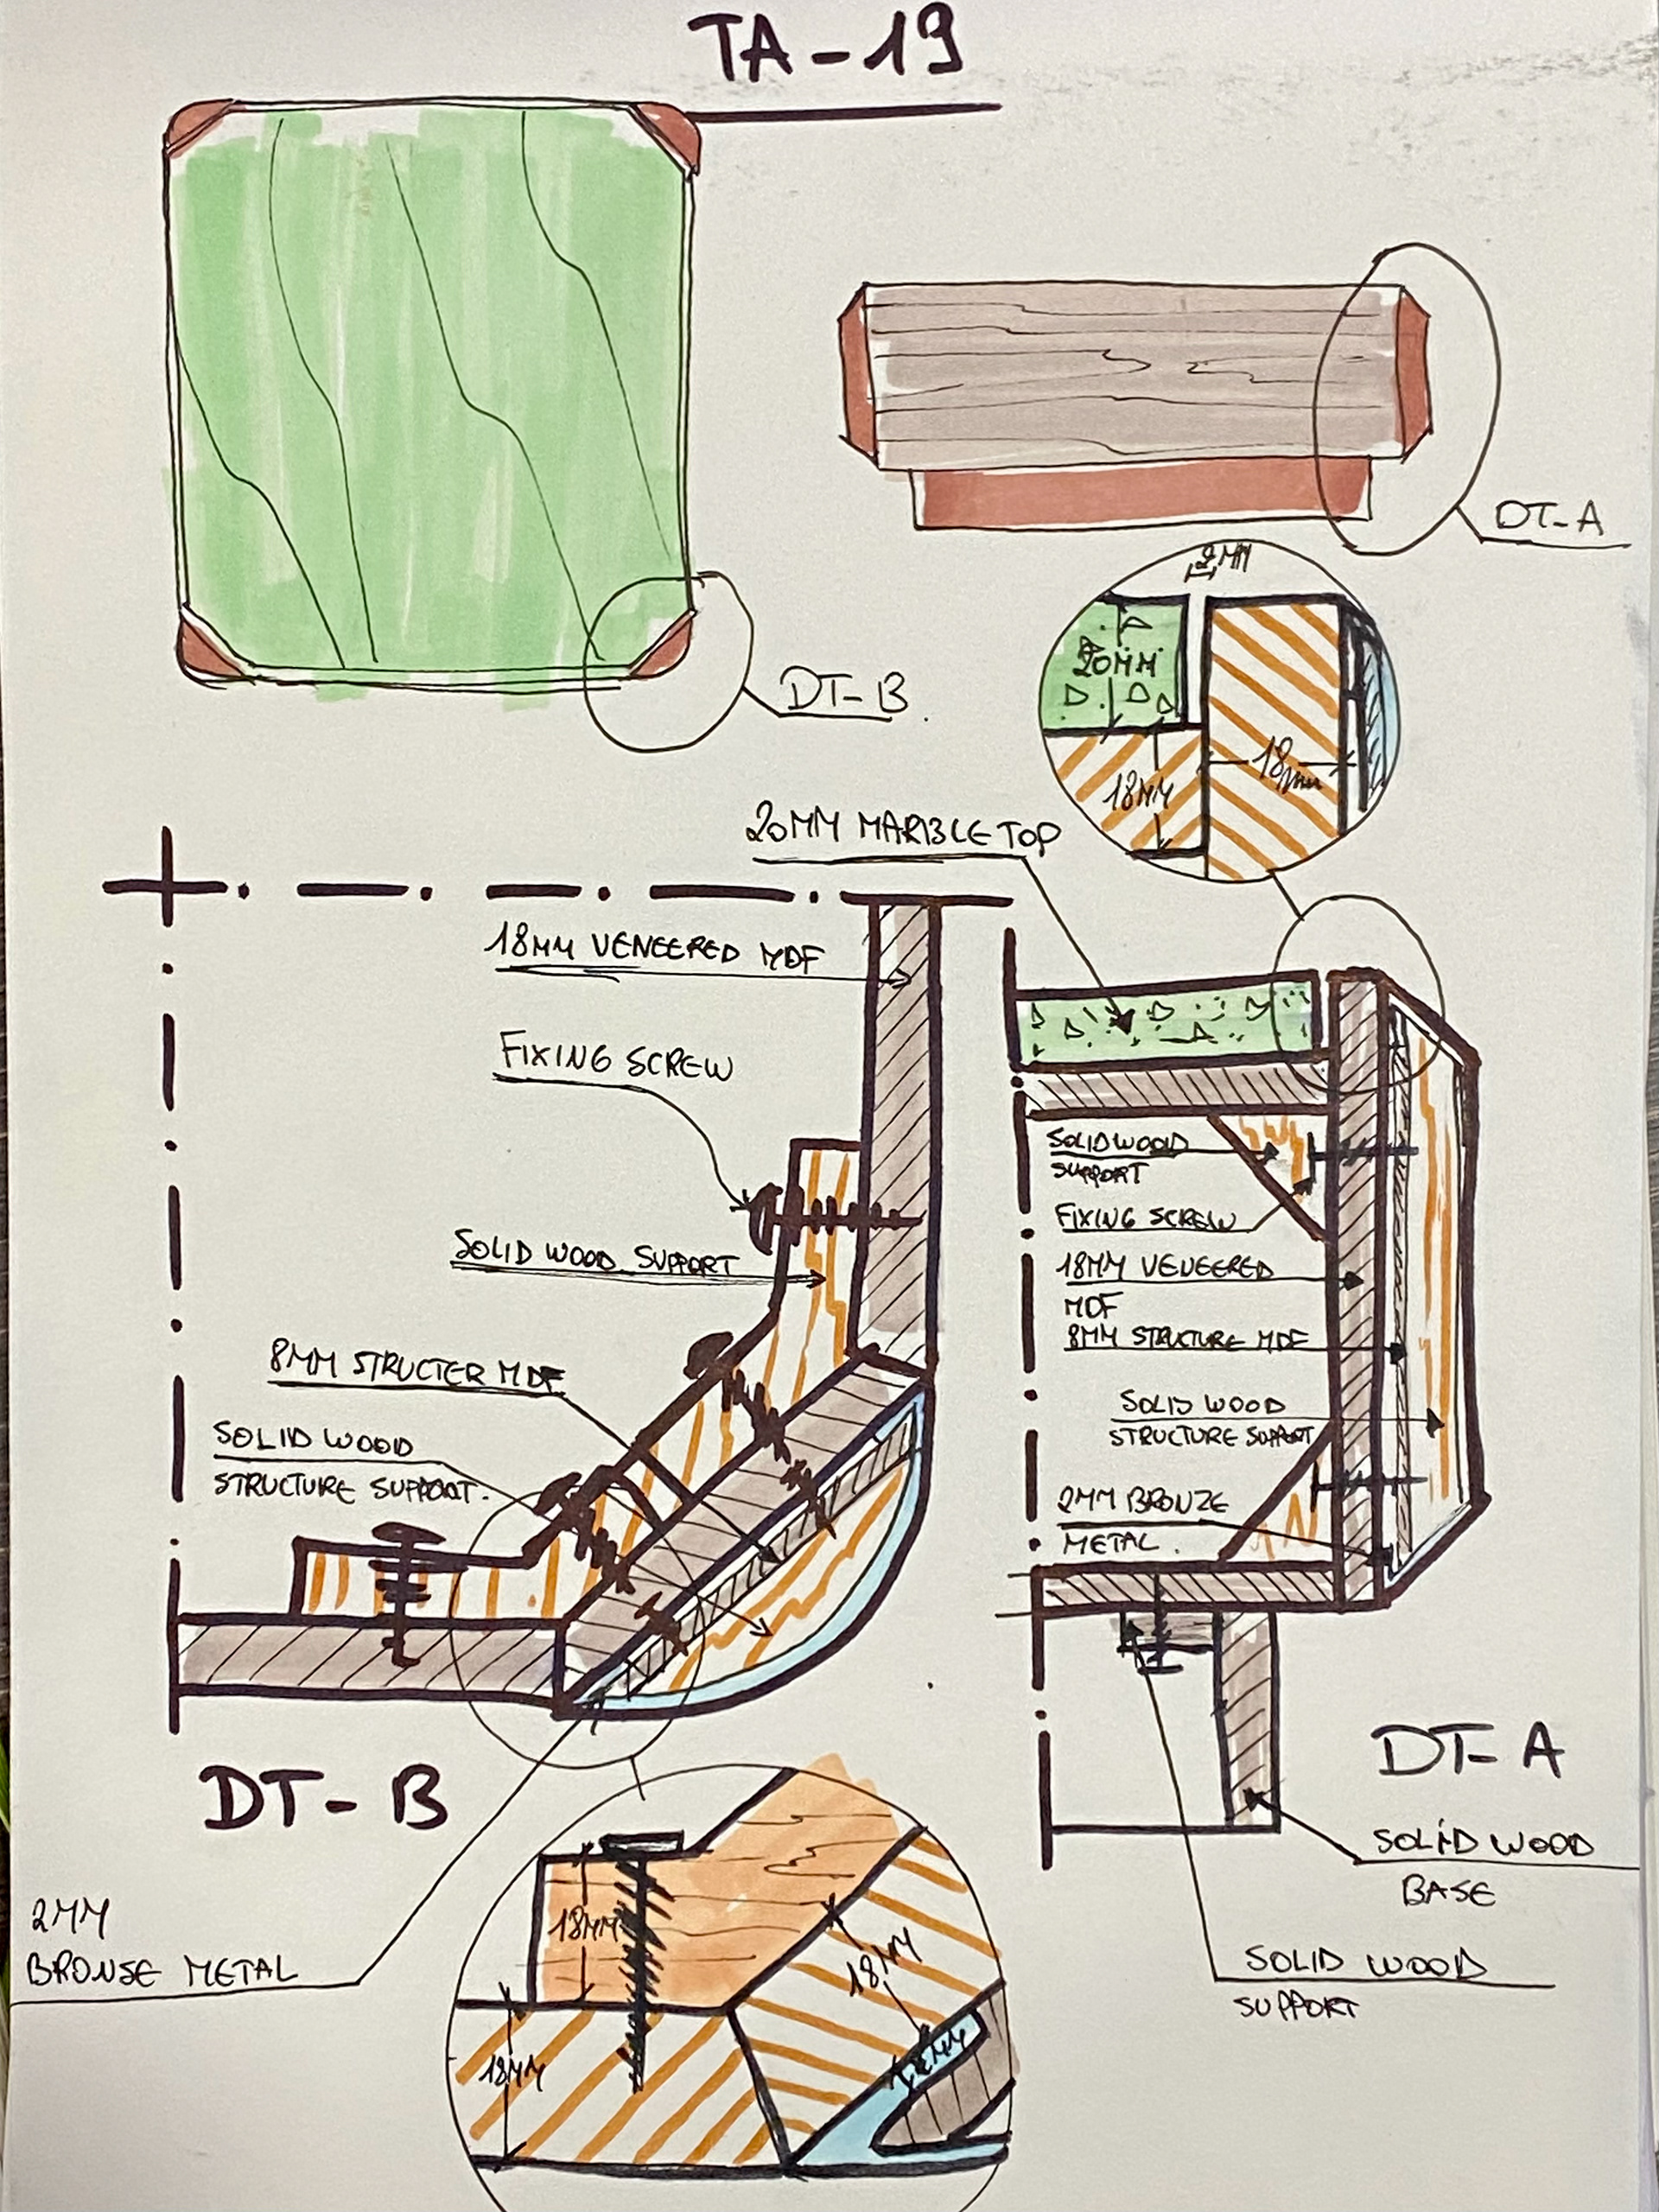 TA-19
DT-A
DT-B.
2MM
20MM
18MM
18mm
20MM MARBLE TOP
18MM VENEERED MDF
FIXING SCREW
SOLID WOOD SUPPORT
8MM STRUCTER MDF
SOLID WOOD
STRUCTURE SUPPORT.
SOLID WOOD
SUPPORT
FIXING SCREW
18MM VENEERED
MDF
8MM STRUCTURE MDF
SOLID WOOD
STRUCTURE SUPPORT
2MM BRONZE
METAL.
DT-B
DT-A
SOLID WOOD
BASE
SOLID WOOD
SUPPORT
2MM
BRONSE METAL
18MM
18MM
18MM